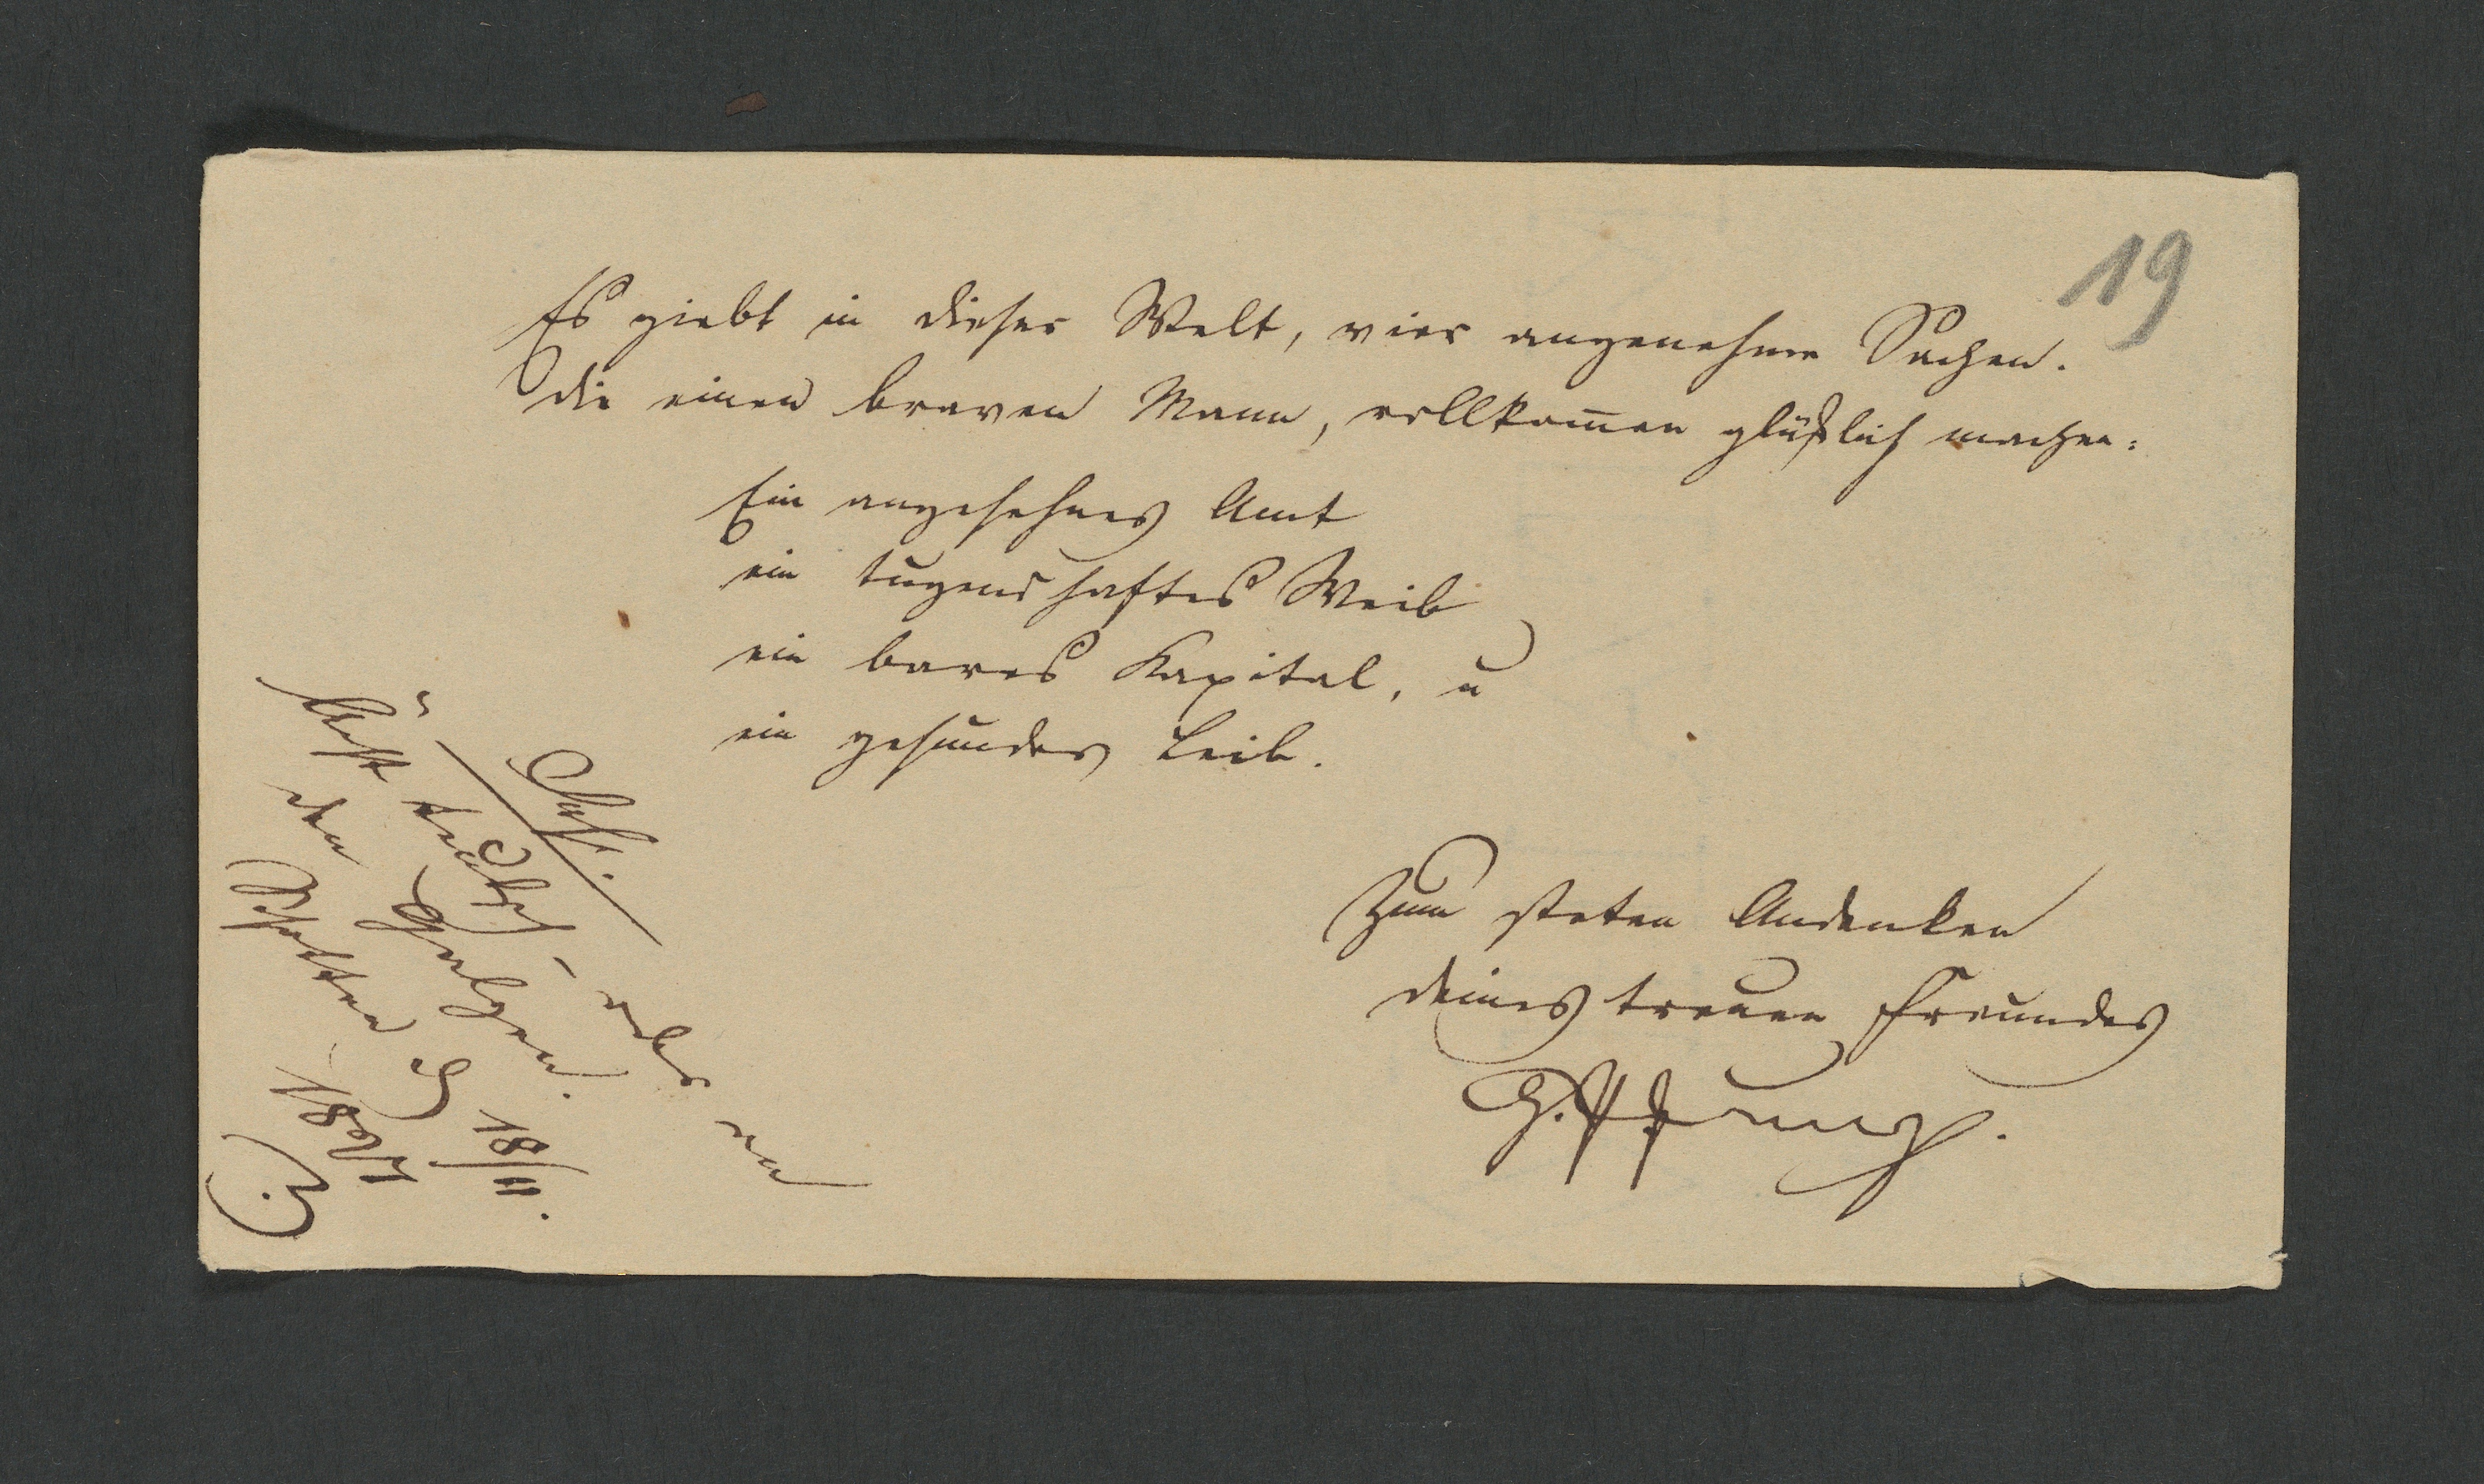 19
Es giebt in dieser Welt, vier angenehme Sachen.
die einen braven Mann, vollkom̄en glüklich machen:
Ein angesehnes Amt
ein tugendhaftes Weib
ein bares Kapital, u
ein gesunder Leib.
Zum steten Andenken
deines treuen Freundes
den Galgen.
18/11.